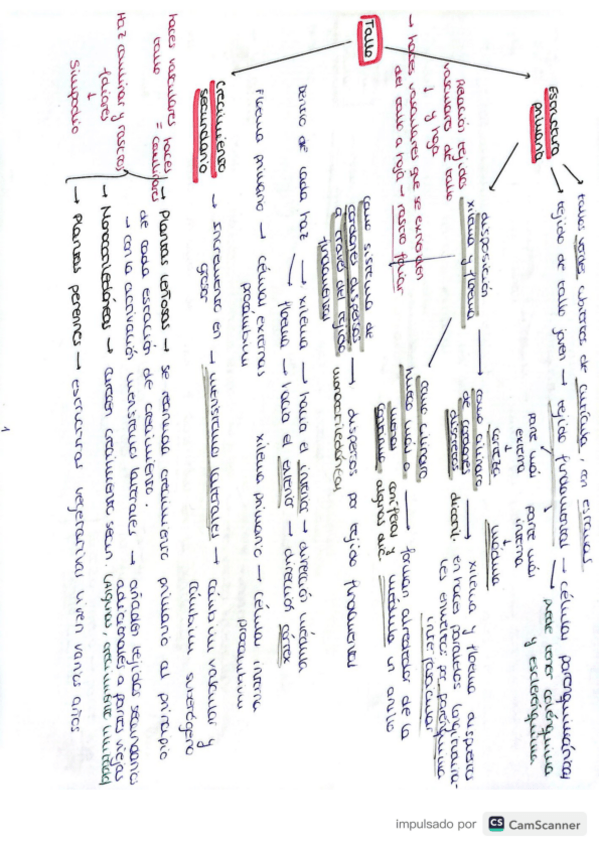 Tallo
Estructura primaria
tallos verdes cubiertos de cutícula, con estomas
tejido de tallo joven → tejido fundamental → células parenquimáticas
puede tener colénquima
y esclerénquima
parte más externa
↓
corteza
parte más interna
↓
médula
disposición
xilema y floema
Relación tejidos
vasculares de tallo
↓ y hoja
→ haces vasculares que se extienden
del tallo a hoja → rastro foliar
como cilindro
de cordones
discretos
→ xilema y floema dispuestos
en haces paralelos longitudina-
les envueltos por parénquima
interfascicular
como cilindro
hueco más o
menos
continuo
→ forman alrededor de la
médula un anillo
coníferas y
algunas dic.
como sistema de
cordones dispersos
a través del tejido
fundamental
→ dispersos por tejido fundamental
monocotiledóneas
Dentro de cada haz → xilema → hacia el interior → dirección médula
floema → hacia el exterior → dirección córtex
Floema primario → células externas
procámbium
xilema primario → células internas
procámbium
Crecimiento
secundario
→ incremento en
grosor
→ meristemos laterales → cámbium vascular y
cámbium suberógeno
→ Plantas leñosas → se reanuda crecimiento primario al principio
de cada estación de crecimiento.
→ con la activación meristemos laterales → añaden tejidos secundarios
adicionales a partes viejas
→ Monocotiledóneas → carecen crecimiento secun.
→ Plantas perennes → estructuras vegetativas viven varios años
haces vasculares
tallo
= haces
caulinares
Haz caulinar y rastros
foliares
↓
Simpodio
1
impulsado por CS CamScanner